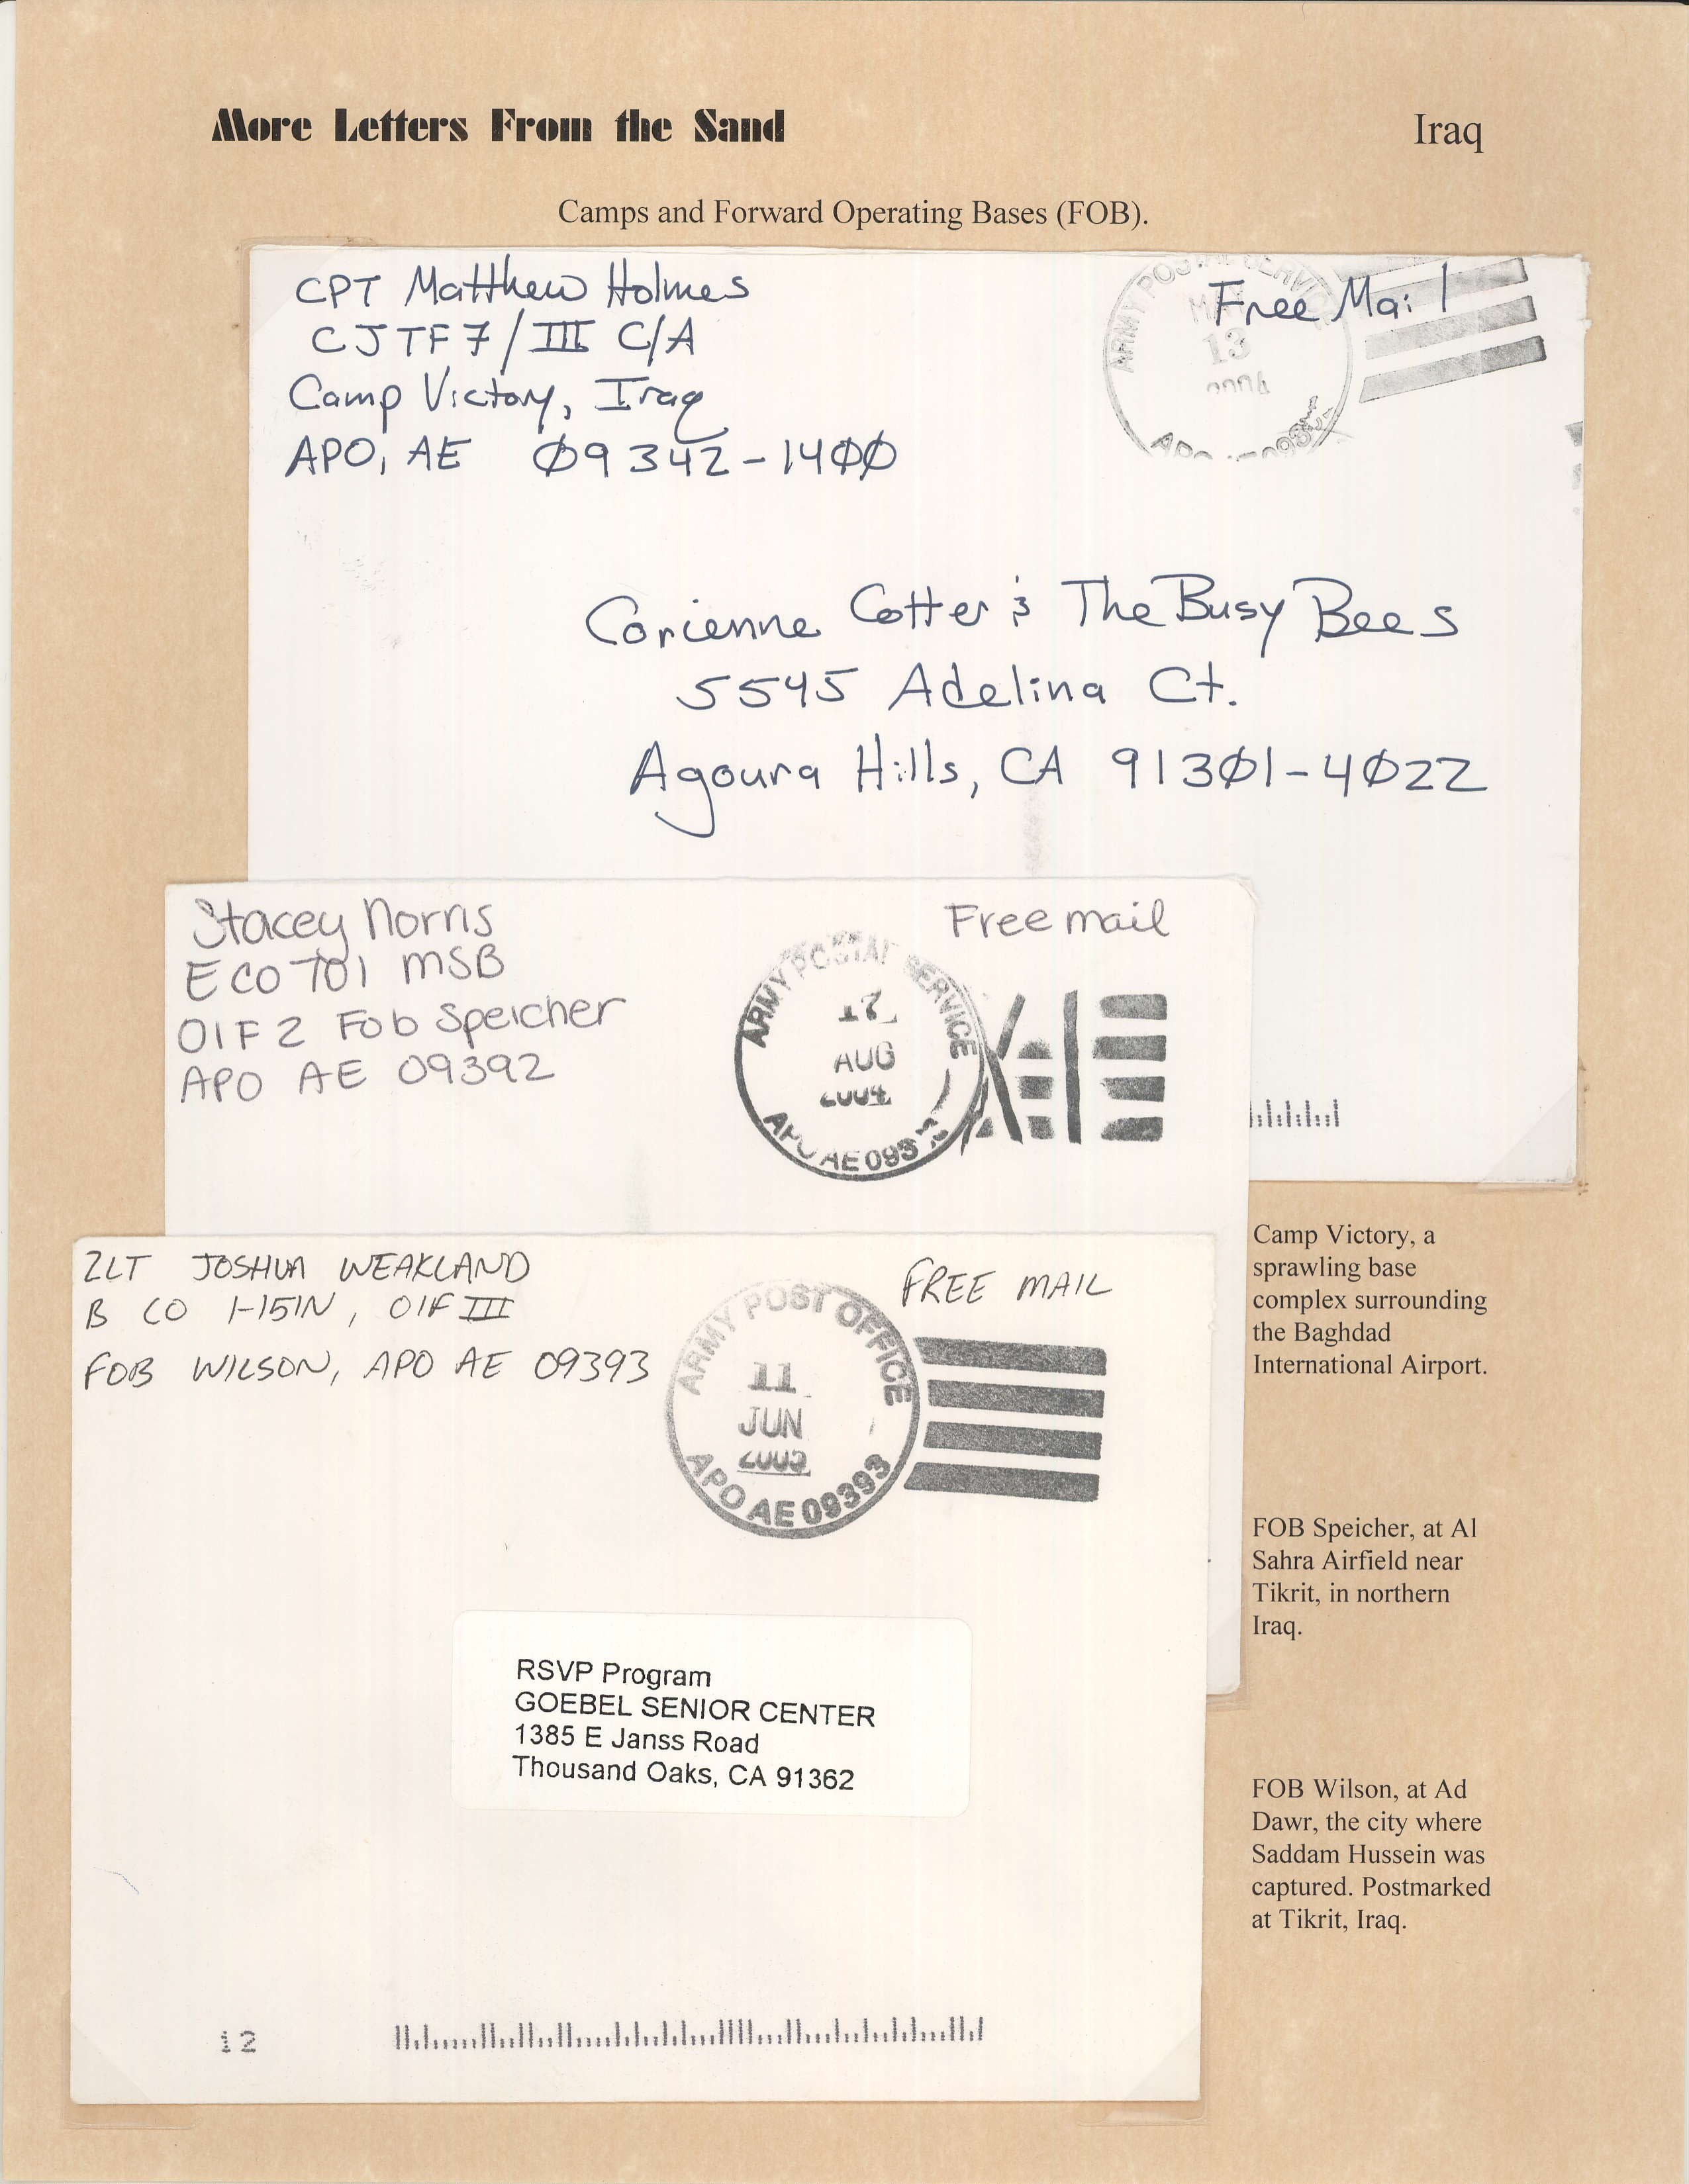 More Letters From the Sand
Iraq
Camps and Forward Operating Bases (FOB).
CPT Matthew Holmes
CJTF7/III C/A
Camp Victory, Iraq
APO, AE 09342-1400
Free Mail
ARMY POSTAL SERVICE
MAY
13
2004
APO
Corienne Cotter & The Busy Bees
5545 Adelina Ct.
Agoura Hills, CA 91301-4022
Stacey Norris
E CO 701 MSB
OIF 2 Fob Speicher
APO AE 09392
Free mail
ARMY POSTAL SERVICE
17
AUG
2004
APO AE
2LT JOSHUA WEAKLAND
B CO 1-15IN, OIF III
FOB WILSON, APO AE 09393
FREE MAIL
ARMY POST OFFICE
11
JUN
2005
APO AE 09393
RSVP Program
GOEBEL SENIOR CENTER
1385 E Janss Road
Thousand Oaks, CA 91362
12
Camp Victory, a
sprawling base
complex surrounding
the Baghdad
International Airport.
FOB Speicher, at Al
Sahra Airfield near
Tikrit, in northern
Iraq.
FOB Wilson, at Ad
Dawr, the city where
Saddam Hussein was
captured. Postmarked
at Tikrit, Iraq.